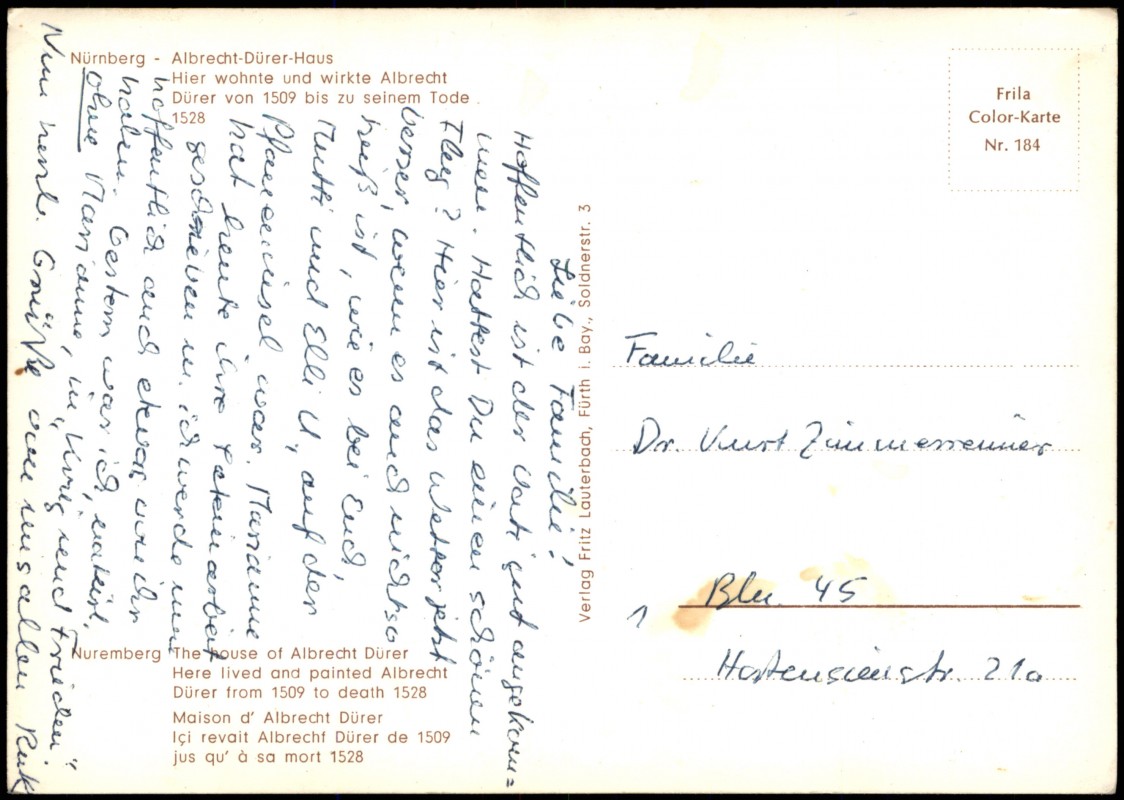 Nürnberg - Albrecht-Dürer-Haus
Hier wohnte und wirkte Albrecht
Dürer von 1509 bis zu seinem Tode
1528
Nuremberg The house of Albrecht Dürer
Here lived and painted Albrecht
Dürer from 1509 to death 1528
Maison d' Albrecht Dürer
Içi revait Albrecht Dürer de 1509
jus qu' à sa mort 1528
Verlag Fritz Lauterbach, Fürth i. Bay., Soldnerstr. 3
Frila
Color-Karte
Nr. 184
Liebe Familie!
Hoffentlich ist der gut angekom=
men. Hattest Du einen schönen
Flug? Hier ist das Wetter jetzt
besser, wenn es auch nicht so
heiß ist, wie es bei Euch,
Mutti und Elli U, auf der
Pfaueninsel war. Marianne
hat heute ihre Lateinarbeit
geschrieben u. ich werde nun
hoffentlich auch etwas von ihr
haben. Gestern war ich, natürl.
ohne Marianne, in „Krieg und Frieden"
Nun herzl. Grüße von uns allen
Familie
Dr. Kurt
1
Bln. 45
Hortensienstr. 21a